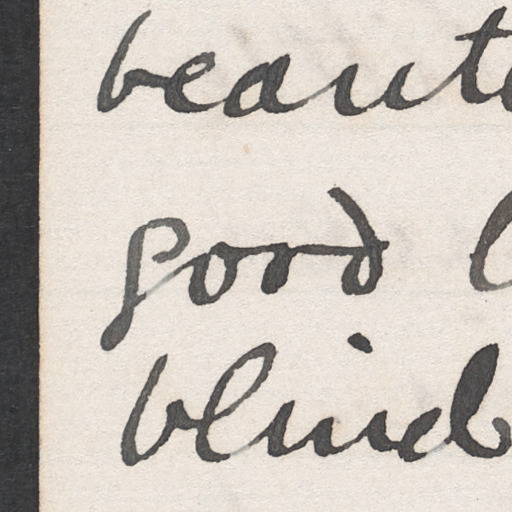 beaut
good
blind